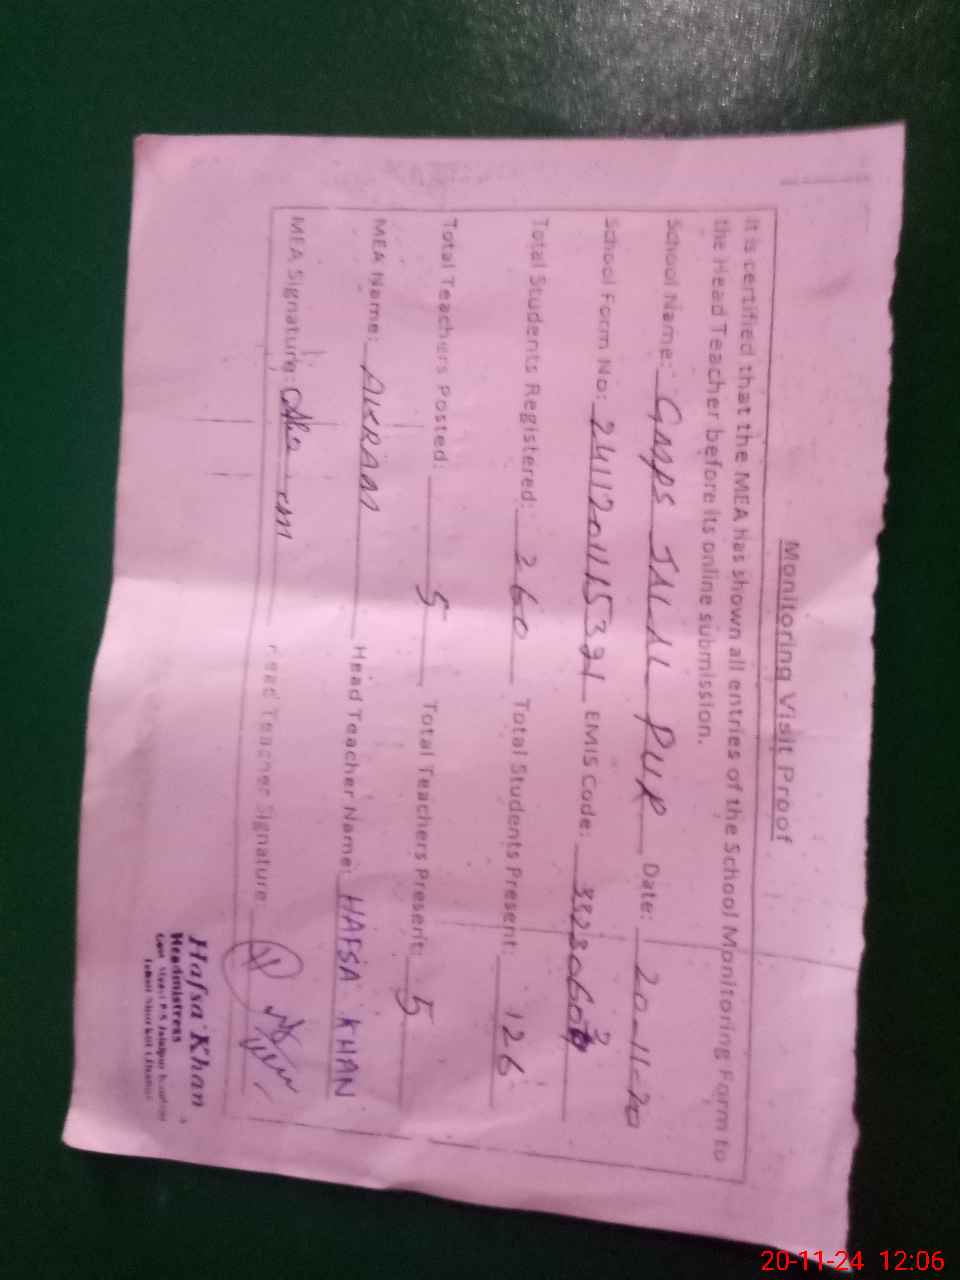 Monitoring Visit Proof
It is certified that the MEA has shown all entries of the School Monitoring Form to
the Head Teacher before its online submission.
School Name: GMPS JALAL PUR Date: 20-11-20
School Form No: EMIS Code:
Total Students Registered: 260 Total Students Present: 126
Total Teachers Posted: 5 Total Teachers Present: 5
MEA Name: AKRAM Head Teacher Name: HAFSA KHAN
MEA Signature: Head Teacher Signature
Hafsa Khan
Headmistress
20-11-24 12:06